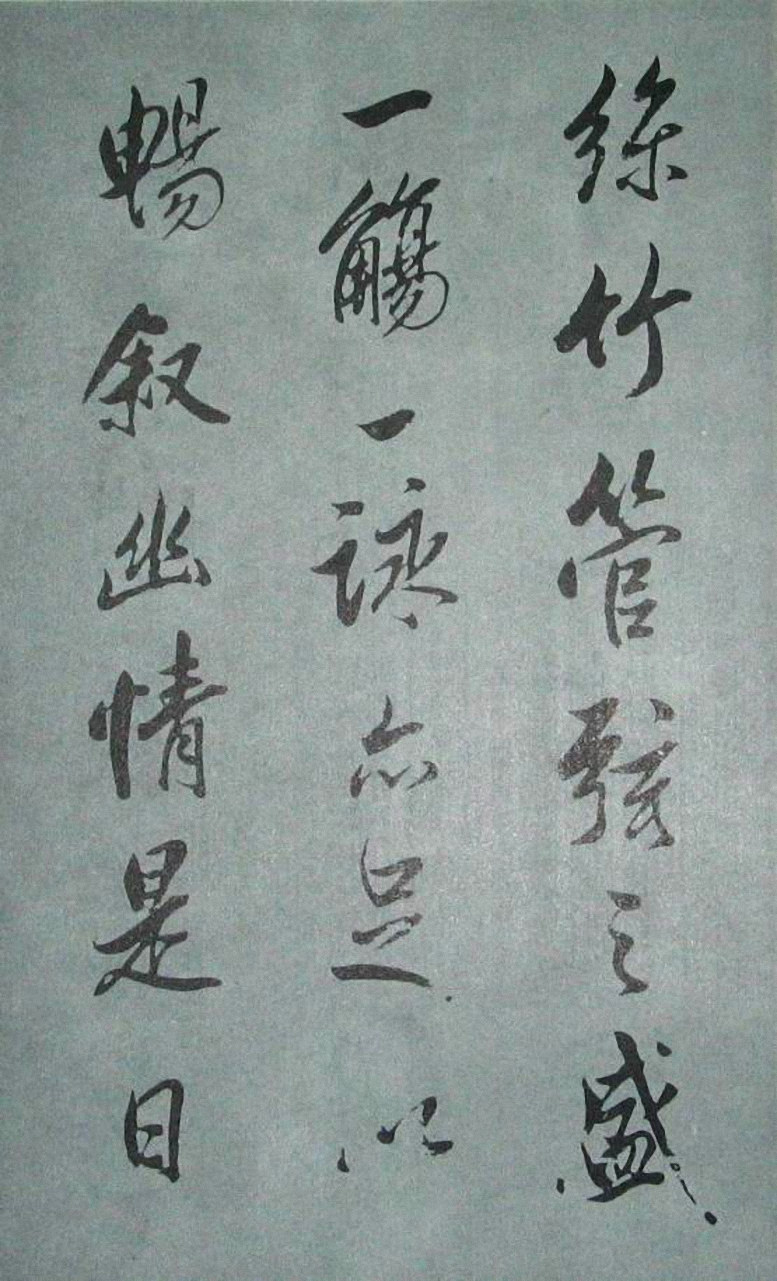 絲竹管弦之盛
一觴一詠亦足以
暢叙幽情是日